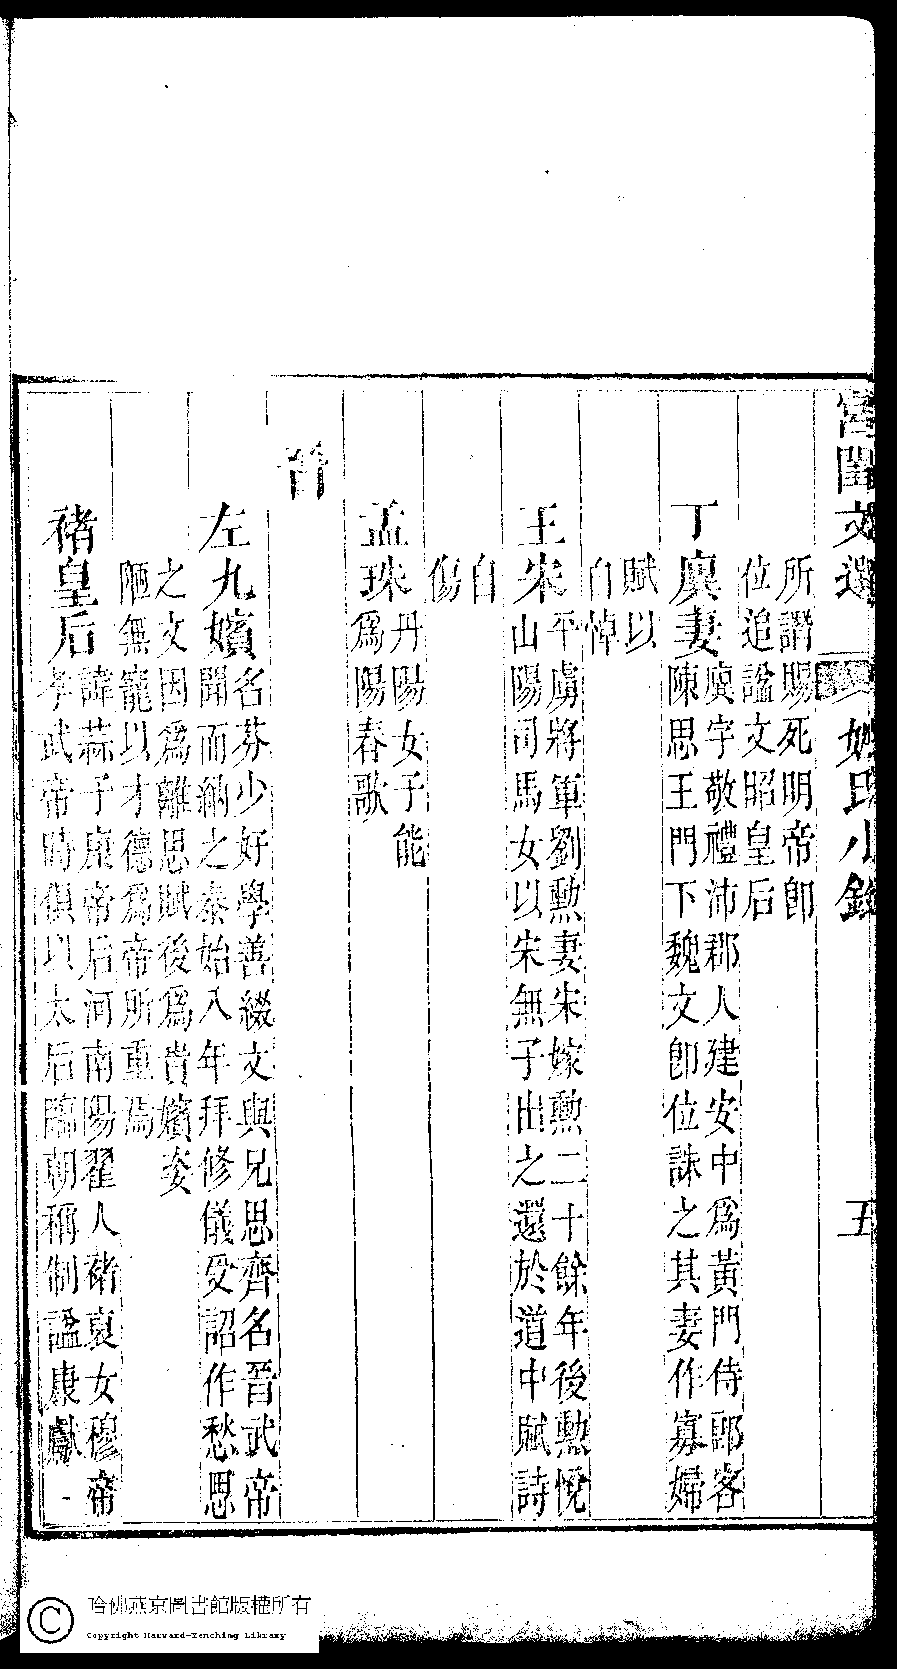 宮閨文選 姓氏小錄 五
所譖賜死明帝卽
位追諡文昭皇后
丁廙妻廙字敬禮沛郡人建安中爲黃門侍郎客
陳思王門下魏文卽位誅之其妻作寡婦
賦以
自悼
王宋平虜將軍劉勲妻宋嫁勲二十餘年後勲悅
山陽司馬女以宋無子出之還於道中賦詩
自
傷
孟珠丹陽女子能
爲陽春歌
晉
左九嬪名芬少好學善綴文與兄思齊名晉武帝
聞而納之泰始八年拜修儀受詔作愁思
之文因爲離思賦後爲貴嬪姿
陋無寵以才德爲帝所重焉
褚皇后諱蒜子康帝后河南陽翟人褚裒女穆帝
孝武帝時俱以太后臨朝稱制諡康獻
哈佛燕京圖書館版權所有
Copyright Harvard-Yenching Library